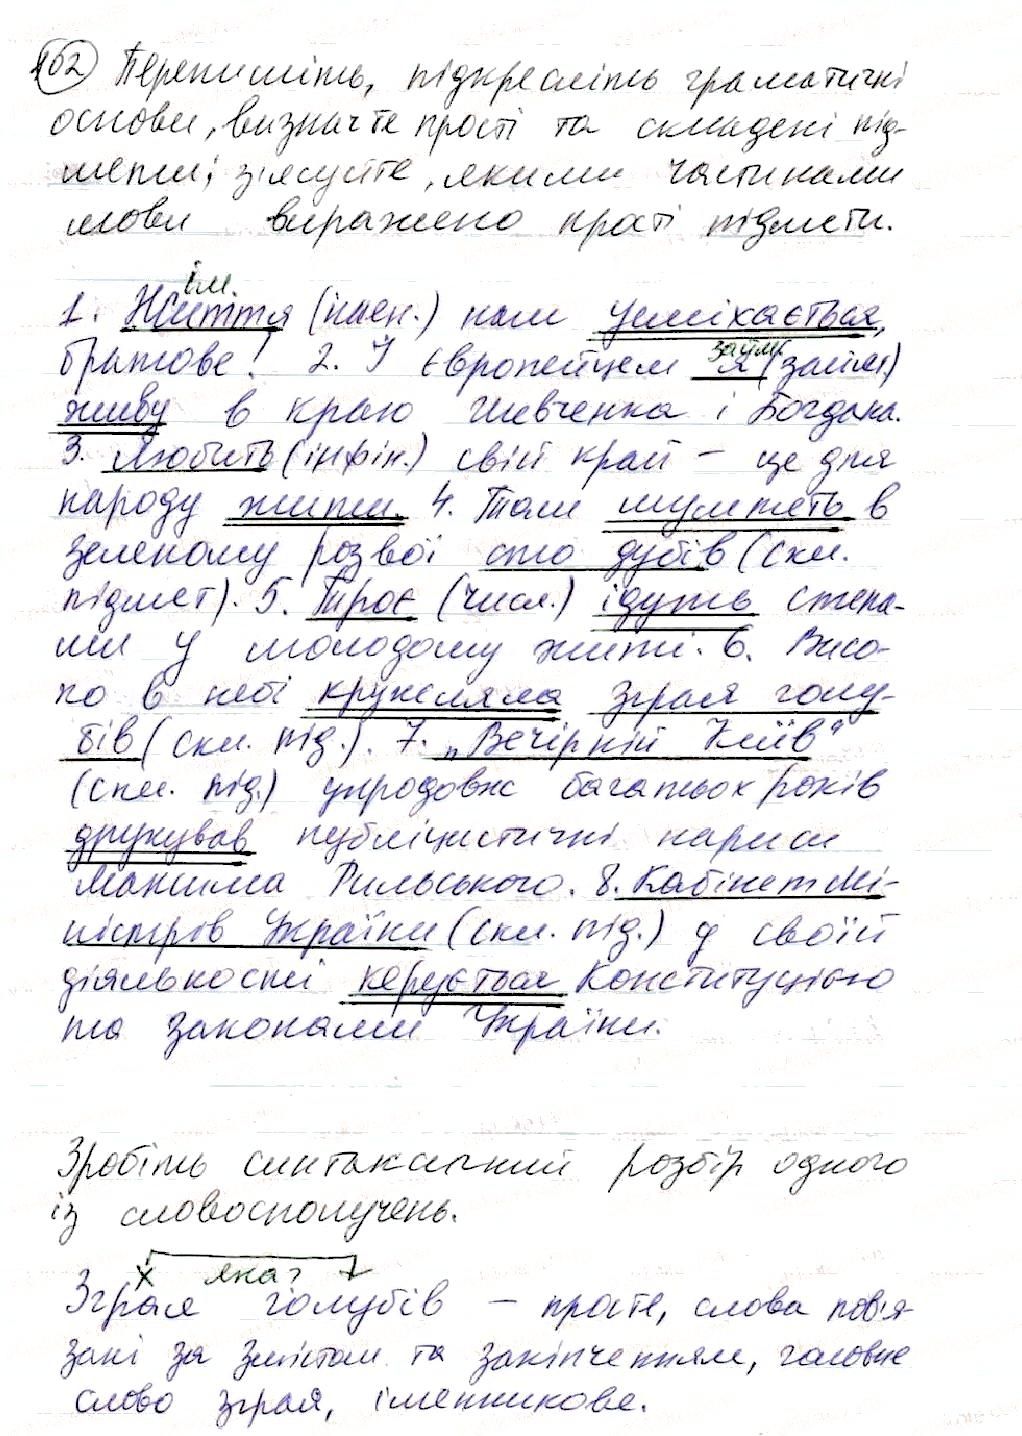 102 Перепишіть, підкресліть граматичні
основи, визначте прості та складені під-
мети; з'ясуйте, якими частинами
мови виражено прості підмети.
ім.
1. Життя (імен.) нам усміхається,
братове! 2. І європейцем я (займ.)
займ.
живу в краю Шевченка і Богдана.
3. Любить (інфін.) свій край - це для
народу жити. 4. Там шумлять в
зеленому розвої сто дубів (скл.
підмет). 5. Троє (числ.) ідуть степа-
ми у молодому житі. 6. Висо-
ко в небі кружляла зграя голу-
бів (скл. під.). 7. „Вечірній Київ"
(скл. під.) упродовж багатьох років
друкував публіцистичні нариси
Максима Рильського. 8. Кабінет Мі-
ністрів України (скл. під.) у своїй
діяльності керується Конституцією
та законами України.
Зробіть синтаксичний розбір одного
із словосполучень.
х яка?
Зграя голубів - просте, слова пов'я-
зані за змістом та закінченням, головне
слово зграя, іменникове.